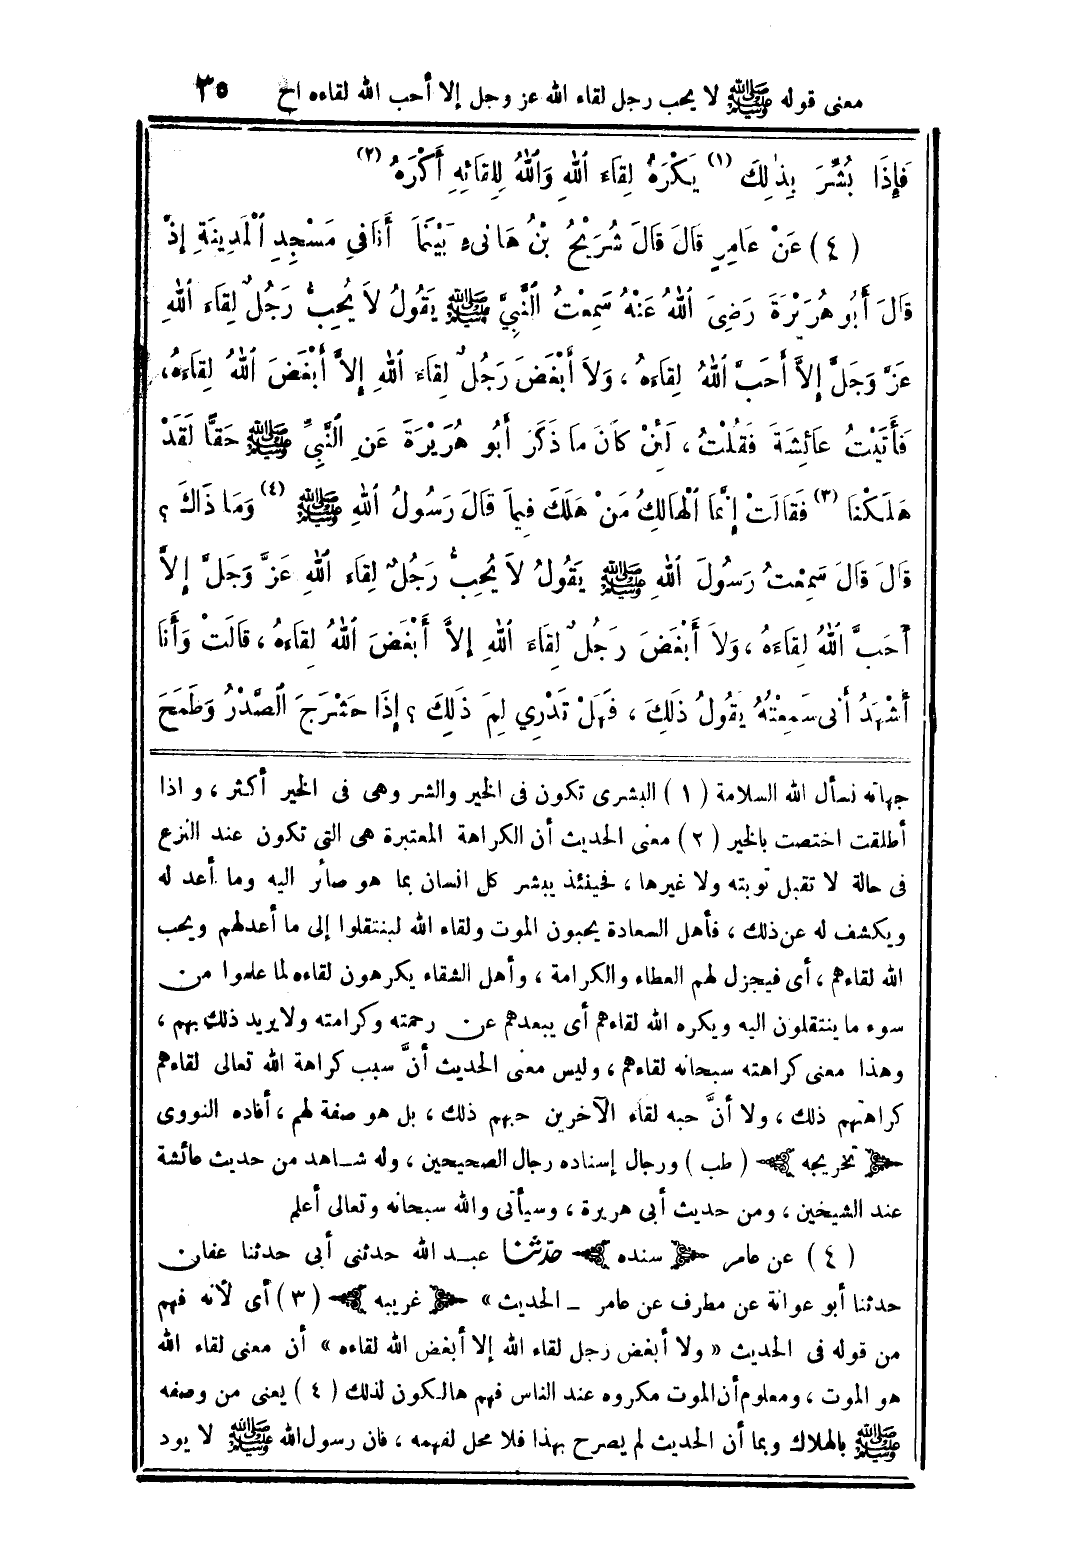 معنى قوله ﷺ لا يحب رجل لقاء الله عز وجل إلا أحب الله لقاءه الخ ٣٥
فَإِذَا بُشِّرَ بِذٰلِكَ (١) يَكْرَهُ لِقَاءَ اللهِ وَاللهُ لِلِقَائِهِ أَكْرَهُ (٢)
(٤) عَنْ عَامِرٍ قَالَ قَالَ شُرَيْحُ بْنُ هَانِىءٍ بَيْنَمَا أَنَا فِى مَسْجِدِ الْمَدِينَةِ إِذْ
قَالَ أَبُو هُرَيْرَةَ رَضِىَ اللهُ عَنْهُ سَمِعْتُ النَّبِيَّ ﷺ يَقُولُ لاَ يُحِبُّ رَجُلٌ لِقَاءَ اللهِ
عَزَّ وَجَلَّ إِلاَّ أَحَبَّ اللهُ لِقَاءَهُ ، وَلاَ أَبْغَضَ رَجُلٌ لِقَاءَ اللهِ إِلاَّ أَبْغَضَ اللهُ لِقَاءَهُ ،
فَأَتَيْتُ عَائِشَةَ فَقُلْتُ ، لَئِنْ كَانَ مَا ذَكَرَ أَبُو هُرَيْرَةَ عَنِ النَّبِيِّ ﷺ حَقًّا لَقَدْ
هَلَكْنَا (٣) فَقَالَتْ إِنَّمَا الْهَالِكُ مَنْ هَلَكَ فِيمَا قَالَ رَسُولُ اللهِ ﷺ (٤) وَمَا ذَاكَ ؟
قَالَ قَالَ سَمِعْتُ رَسُولَ اللهِ ﷺ يَقُولُ لاَ يُحِبُّ رَجُلٌ لِقَاءَ اللهِ عَزَّ وَجَلَّ إِلاَّ
أَحَبَّ اللهُ لِقَاءَهُ ، وَلاَ أَبْغَضَ رَجُلٌ لِقَاءَ اللهِ إِلاَّ أَبْغَضَ اللهُ لِقَاءَهُ ، قَالَتْ وَأَنَا
أَشْهَدُ أَنِّى سَمِعْتُهُ يَقُولُ ذَلِكَ ، فَهَلْ تَدْرِي لِمَ ذَلِكَ ؟ إِذَا حَشْرَجَ الصَّدْرُ وَطَمَحَ
جهاته نسأل الله السلامة (١) البشرى تكون فى الخير والشر وهى فى الخير أكثر ، و اذا
أطلقت اختصت بالخير (٢) معنى الحديث أن الكراهة المعتبرة هى التى تكون عند النزع
فى حالة لا تقبل توبته ولا غيرها ، فحينئذ يبشر كل انسان بما هو صائر اليه وما أعد له
ويكشف له عن ذلك ، فأهل السعادة يحبون الموت ولقاء الله لينتقلوا إلى ما أعدلهم ويحب
الله لقاءهم ، أى فيجزل لهم العطاء والكرامة ، وأهل الشقاء يكرهون لقاءه لما علموا من
سوء ما ينتقلون اليه ويكره الله لقاءهم أى يبعدهم عن رحمته وكرامته ولا يريد ذلك بهم ،
وهذا معنى كراهته سبحانه لقاءهم ، وليس معنى الحديث أنَّ سبب كراهة الله تعالى لقاءهم
كراهتهم ذلك ، ولا أنَّ حبه لقاء الآخرين حبهم ذلك ، بل هو صفة لهم ، أفاده النووى
تخريجه (طب) ورجال إسناده رجال الصحيحين ، وله شاهد من حديث عائشة
عند الشيخين ، ومن حديث أبى هريرة ، وسيأتى والله سبحانه وتعالى أعلم
(٤) عن عامر سنده حدّثنا عبد الله حدثنى أبى حدثنا عفان
حدثنا أبو عوانة عن مطرف عن عامر ــ الحديث » غريبه (٣) أى لأنه فهم
من قوله فى الحديث « ولا أبغض رجل لقاء الله إلا أبغض الله لقاءه » أن معنى لقاء الله
هو الموت ، ومعلوم أن الموت مكروه عند الناس فهم هالكون لذلك (٤) يعنى من وصفه
ﷺ بالهلاك وبما أن الحديث لم يصرح بهذا فلا محل لفهمه ، فان رسول الله ﷺ لا يود